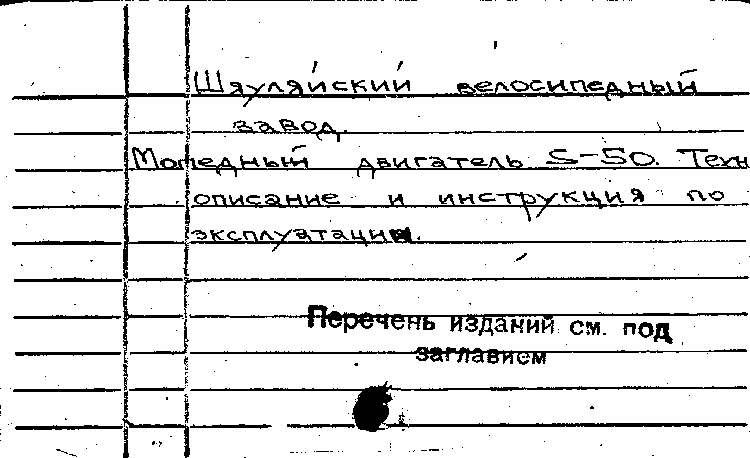 Шяуляйский велосипедный
завод.
Мопедный двигатель S-50. Техн
описание и инструкция по
эксплуатации.
Перечень изданий см. под
заглавием